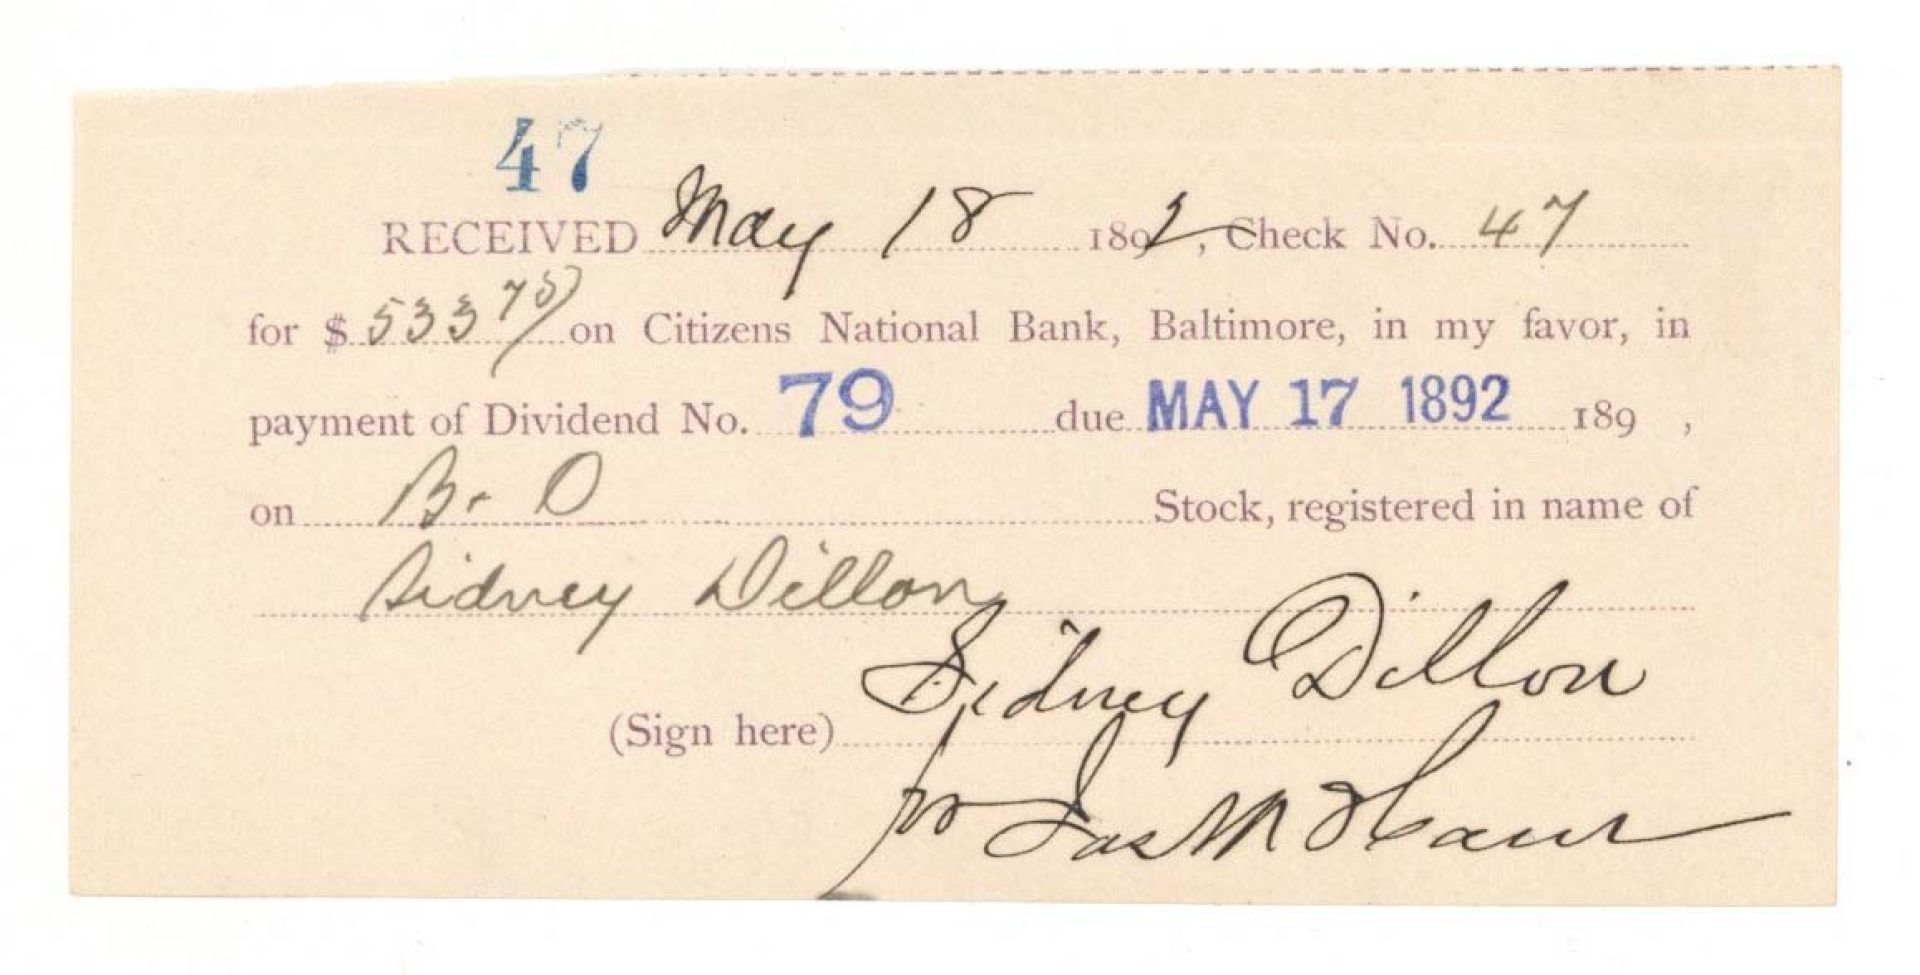 47
RECEIVED May 18 1892, Check No. 47
for $ 533 75 on Citizens National Bank, Baltimore, in my favor, in
payment of Dividend No. 79 due MAY 17 1892 189 ,
on B. O Stock, registered in name of
Sidney Dillon
Sidney Dillon
(Sign here)
pr Jas M